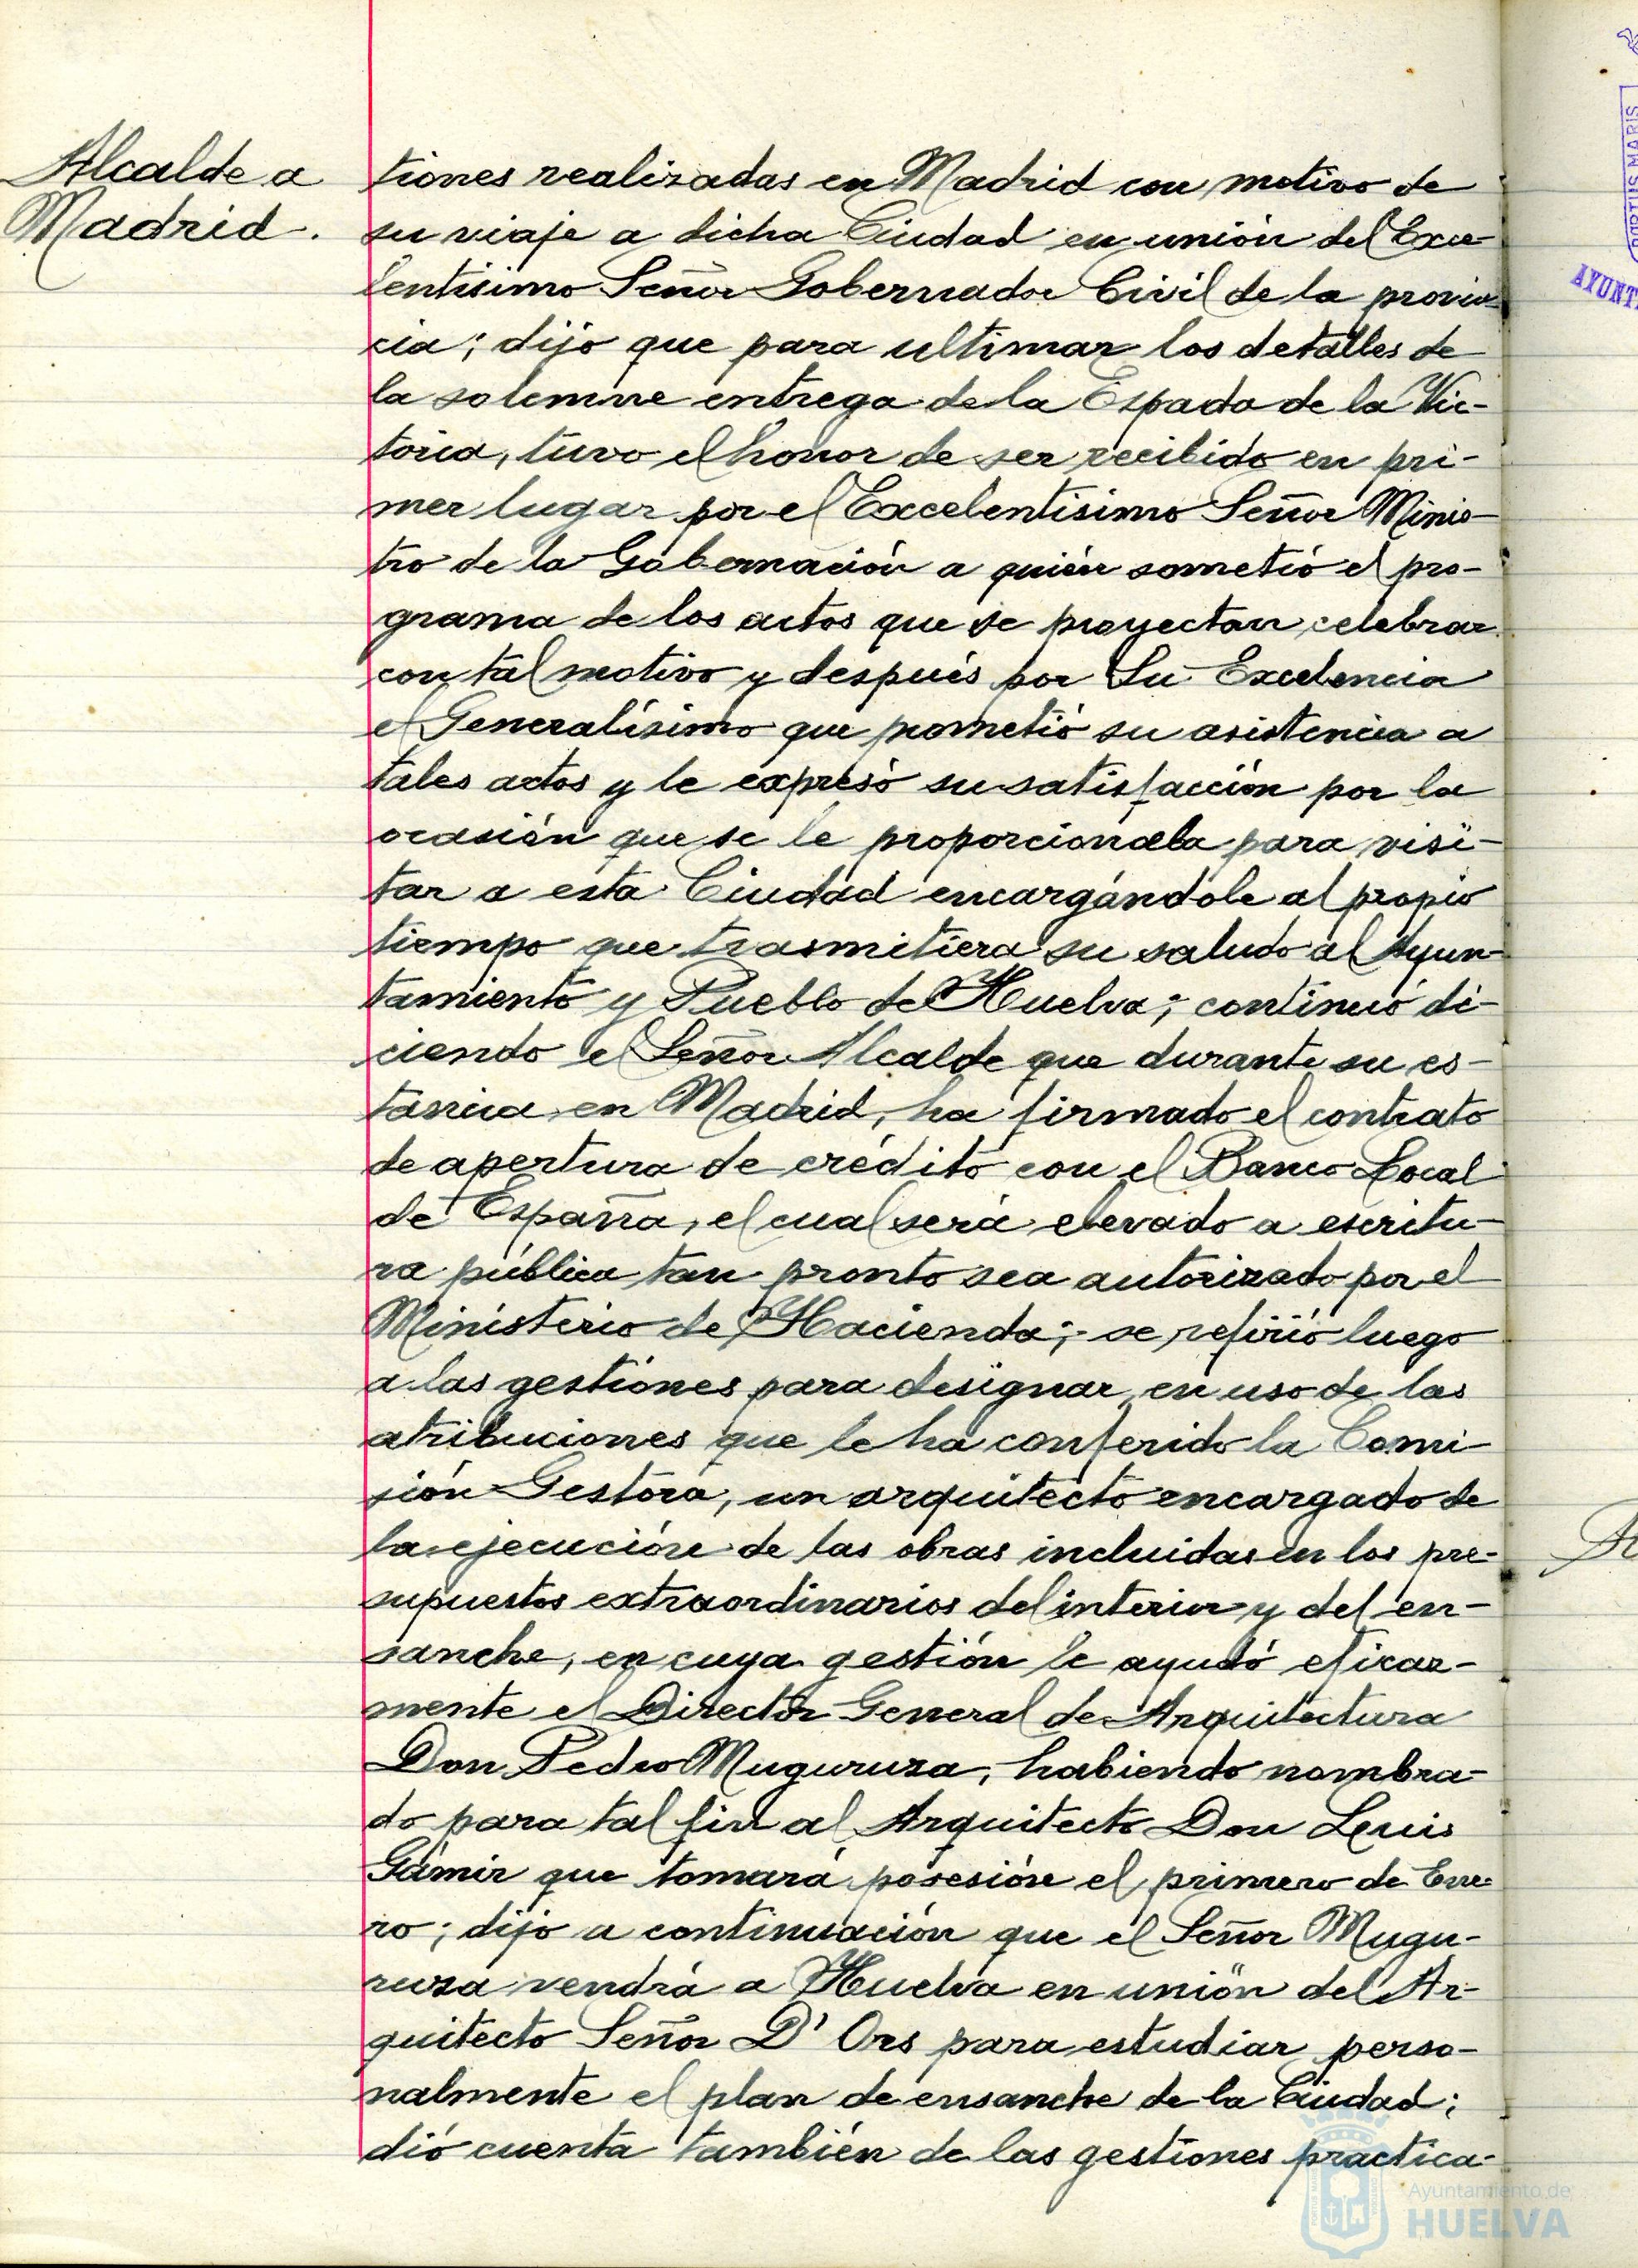 Alcalde a
Madrid.
tiones realizadas en Madrid con motivo de
su viaje a dicha Ciudad en unión del Exce-
lentisimo Señor Gobernador Civil de la provin-
cia; dijo que para ultimar los detalles de
la solemne entrega de la Espada de la Vic-
toria, tuvo el honor de ser recibido en pri-
mer lugar por el Excelentisimo Señor Minis-
tro de la Gobernación a quién sometió el pro-
grama de los actos que se proyectan celebrar
con tal motivo y después por Su Excelencia
el Generalísimo que prometió su asistencia a
tales actos y le expresó su satisfacción por la
ocasión que se le proporcionaba para visi-
tar a esta Ciudad encargándole al propio
tiempo que trasmitiera su saludo al Ayun-
tamiento y Pueblo de Huelva; continuó di-
ciendo el Señor Alcalde que durante su es-
tancia en Madrid, ha firmado el contrato
de apertura de crédito con el Banco Local
de España, el cual será elevado a escritu-
ra pública tan pronto sea autorizado por el
Ministerio de Hacienda; se refirió luego
a las gestiones para designar, en uso de las
atribuciones que le ha conferido la Comi-
sión Gestora, un arquitecto encargado de
la ejecución de las obras incluidas en los pre-
supuestos extraordinarios del interior y del en-
sanche, en cuya gestión le ayudó eficaz-
mente el Director General de Arquitectura
Don Pedro Muguruza, habiendo nombra-
do para tal fin al Arquitecto Don Luis
Gámir que tomará posesión el primero de Ene-
ro; dijo a continuación que el Señor Mugu-
ruza vendrá a Huelva en unión del Ar-
quitecto Señor D' Ors para estudiar perso-
nalmente el plan de ensanche de la Ciudad;
dió cuenta también de las gestiones practica-
PORTUS MARIS
AYUNT
Ayuntamiento de
HUELVA